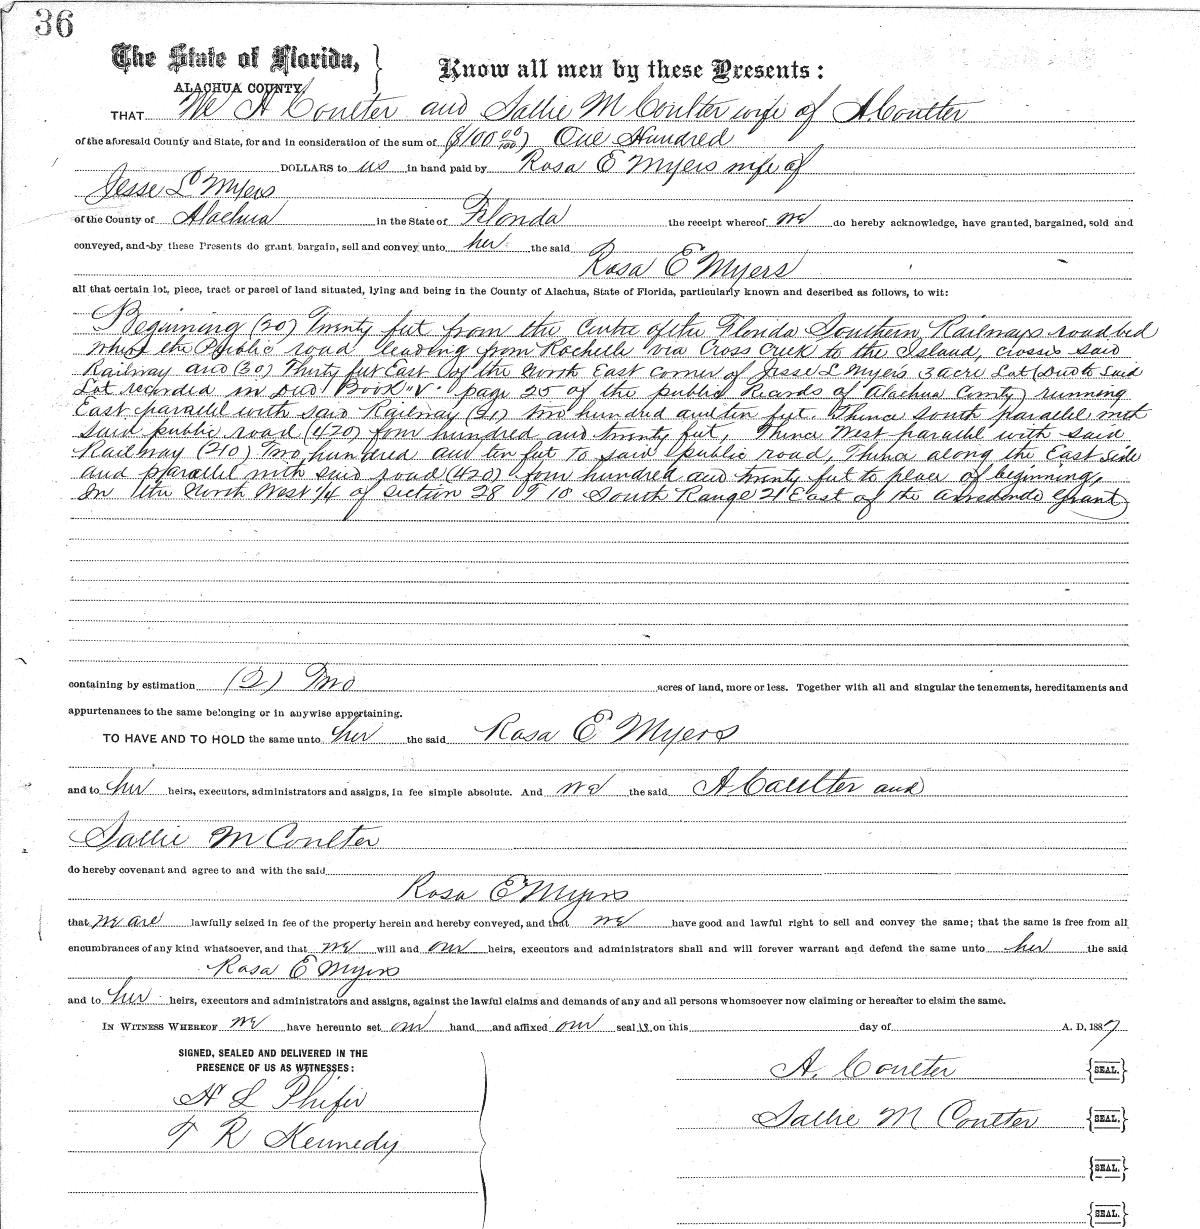 36
The State of Florida,
ALACHUA COUNTY
Know all men by these Presents:
THAT We A Coulter and Sallie M Coulter wife of A. Coulter
of the aforesaid County and State, for and in consideration of the sum of ($100 00/100) One Hundred
DOLLARS to us in hand paid by Rosa E Myers wife of
Jesse L Myers
of the County of Alachua in the State of Florida the receipt whereof we do hereby acknowledge, have granted, bargained, sold and
conveyed, and by these Presents do grant, bargain, sell and convey unto her the said
Rosa E Myers
all that certain lot, piece, tract or parcel of land situated, lying and being in the County of Alachua, State of Florida, particularly known and described as follows, to wit:
Beginning (20) Twenty feet from the Centre of the Florida Southern Railways road bed
where the Public road leading from Rochelle via Cross Creek to the Island, crosses said
Railway and (30) Thirty feet East of the North East corner of Jesse L Myers 3 acre Lot (Deed to Said
Lot recorded in Deed Book "V" page 25 of the public Records of Alachua County) running
East parallel with said Railway (21) Two hundred and ten feet. Thence South parallel with
said public road (420) four hundred and twenty feet, Thence West parallel with said
Railway (210) Two hundred and ten feet To said public road, Thence along the East side
and parallel with said road (420) four hundred and twenty feet to place of beginning,
In the North West 1/4 of section 28 T 10 South Range 21 East of the Arredondo Grant
containing by estimation (2) Two acres of land, more or less. Together with all and singular the tenements, hereditaments and
appurtenances to the same belonging or in anywise appertaining.
TO HAVE AND TO HOLD the same unto her the said Rosa E Myers
and to her heirs, executors, administrators and assigns, in fee simple absolute. And we the said A Coulter and
Sallie M Coulter
do hereby covenant and agree to and with the said
Rosa E Myers
that we are lawfully seized in fee of the property herein and hereby conveyed, and that we have good and lawful right to sell and convey the same; that the same is free from all
encumbrances of any kind whatsoever, and that we will and our heirs, executors and administrators shall and will forever warrant and defend the same unto her the said
Rosa E Myers
and to her heirs, executors and administrators and assigns, against the lawful claims and demands of any and all persons whomsoever now claiming or hereafter to claim the same.
IN WITNESS WHEREOF we have hereunto set our hand and affixed our seals on this day of A. D. 1887
SIGNED, SEALED AND DELIVERED IN THE
PRESENCE OF US AS WITNESSES:
A. Coulter {SEAL.}
H L Phifer
Sallie M Coulter {SEAL.}
T R Kennedy
{SEAL.}
{SEAL.}